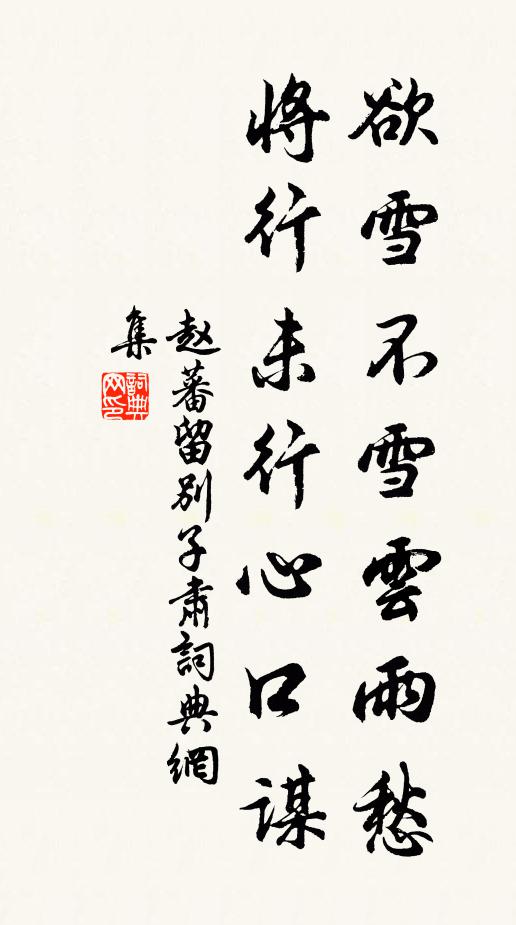 欲雪不雪雲雨愁
將行未行心口謀
赵蕃留别子肅詞典網
集
詞典網印